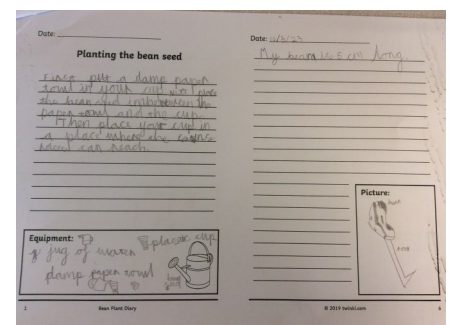 Date:
Planting the bean seed
First put a damp paper
towl in your cup next place
the bean seed inbetween the
paper towl and the cup.
Then place your cup in
a place where the
can reach.
Equipment:
plastic cup
jug of
damp paper towl
2
Bean Plant Diary
Date: 11/3/23
My bean is 5 cm long.
Picture:
bean
root
© 2019 twinkl.com
6